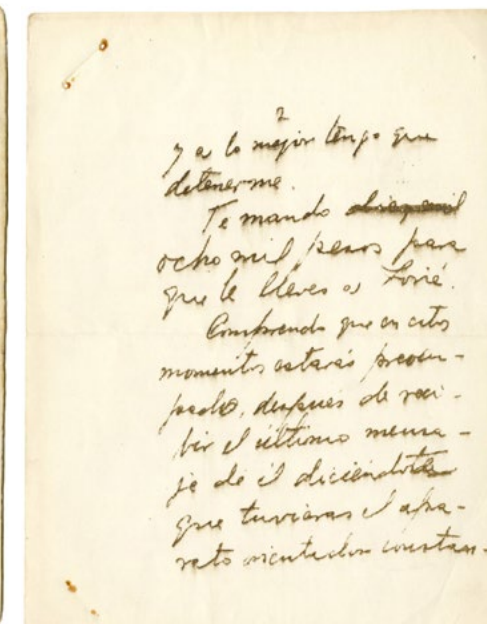 2
y a lo mejor tengo que
detenerme.
Te mando diez mil
ocho mil pesos para
que le lleves a
Comprendo que en estos
momentos estarás preocu-
pado, después de reci-
bir el último mensa-
je de él diciéndote
que tuvieras el apa-
rato constan-